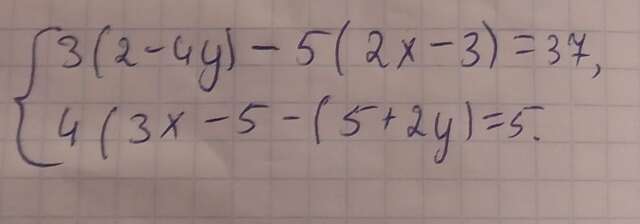 3(2-4y)-5(2x-3)=37,
4(3x-5-(5+2y)=5.